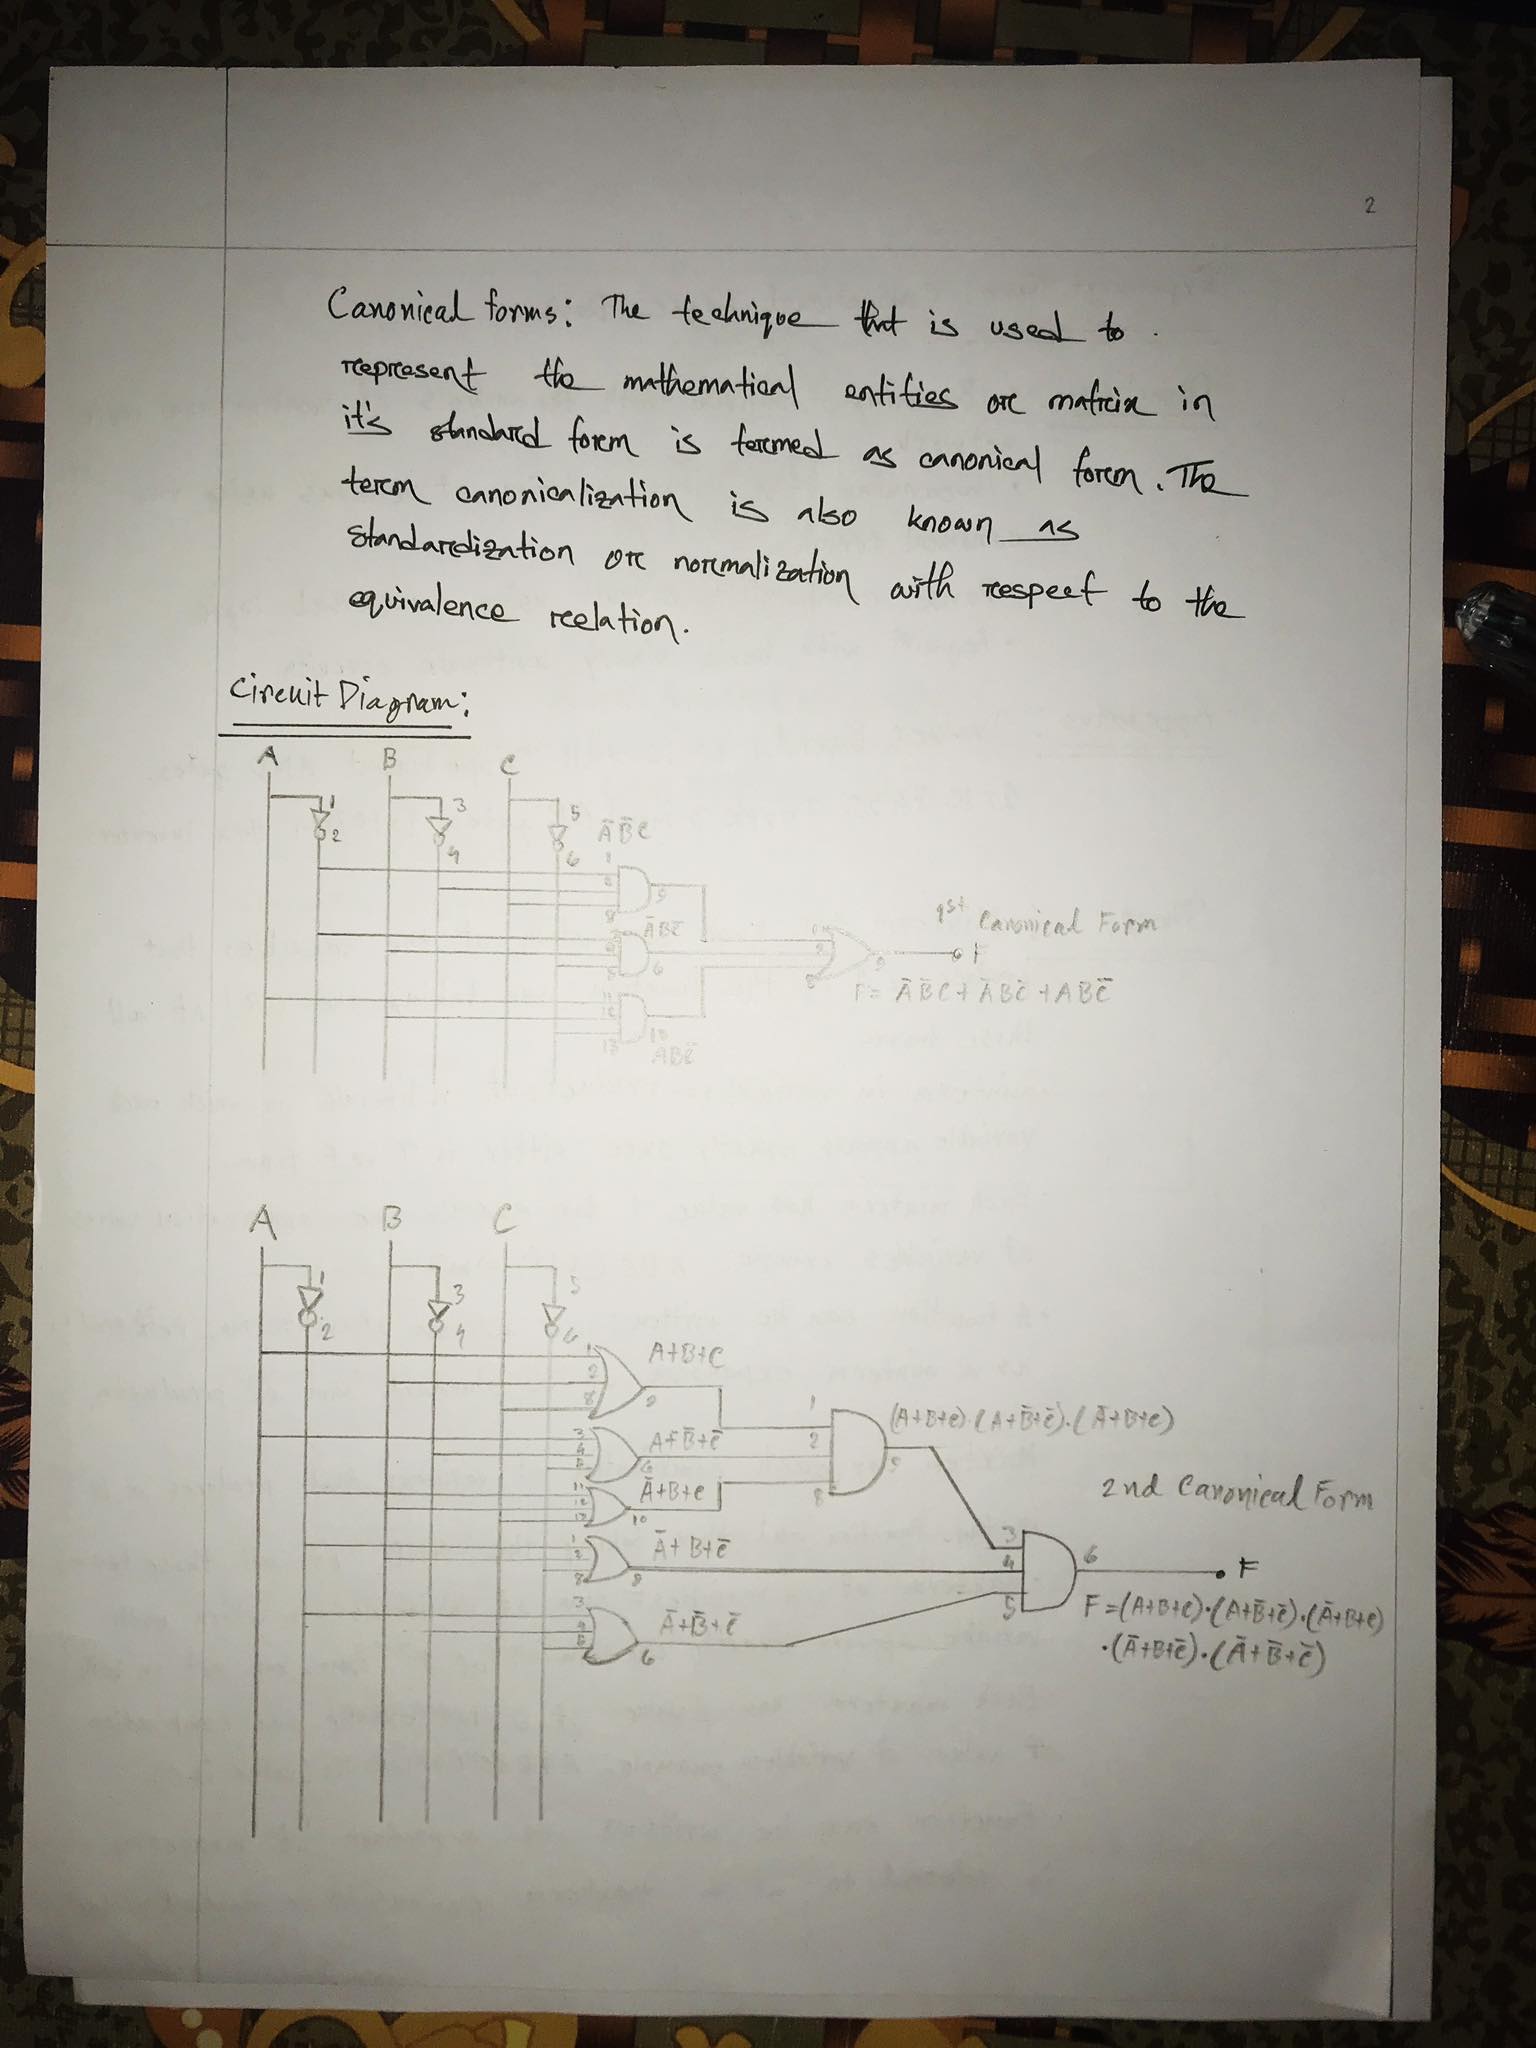 2
Canonical forms: The technique that is used to
represent the mathematical entities or matrix in
it's standard form is termed as canonical form. The
term canonicalization is also known as
standardization or normalization with respect to the
equivalence relation.
Circuit Diagram:
A B C
1 3 5
2 4 6
A̅ B̅ C
1
2
8
9
A̅BC̅
3
4
5
6
11
12
13
10
ABC̅
1
2
8
9
1st Canonical Form
F
F = A̅ B̅ C + A̅ B C̅ + A B C̅
A B C
1 3 5
2 4 6
1
2
8
9
A+B+C
3
4
5
6
A+B̅+C̅
11
12
13
10
A̅+B+C
1
2
8
9
A̅+B+C̅
3
4
5
6
A̅+B̅+C̅
1
2
8
9
(A+B+C).(A+B̅+C̅).(A̅+B+C)
2nd Canonical Form
3
4
5
6
F
F=(A+B+C).(A+B̅+C̅).(A̅+B+C)
.(A̅+B+C̅).(A̅+B̅+C̅)